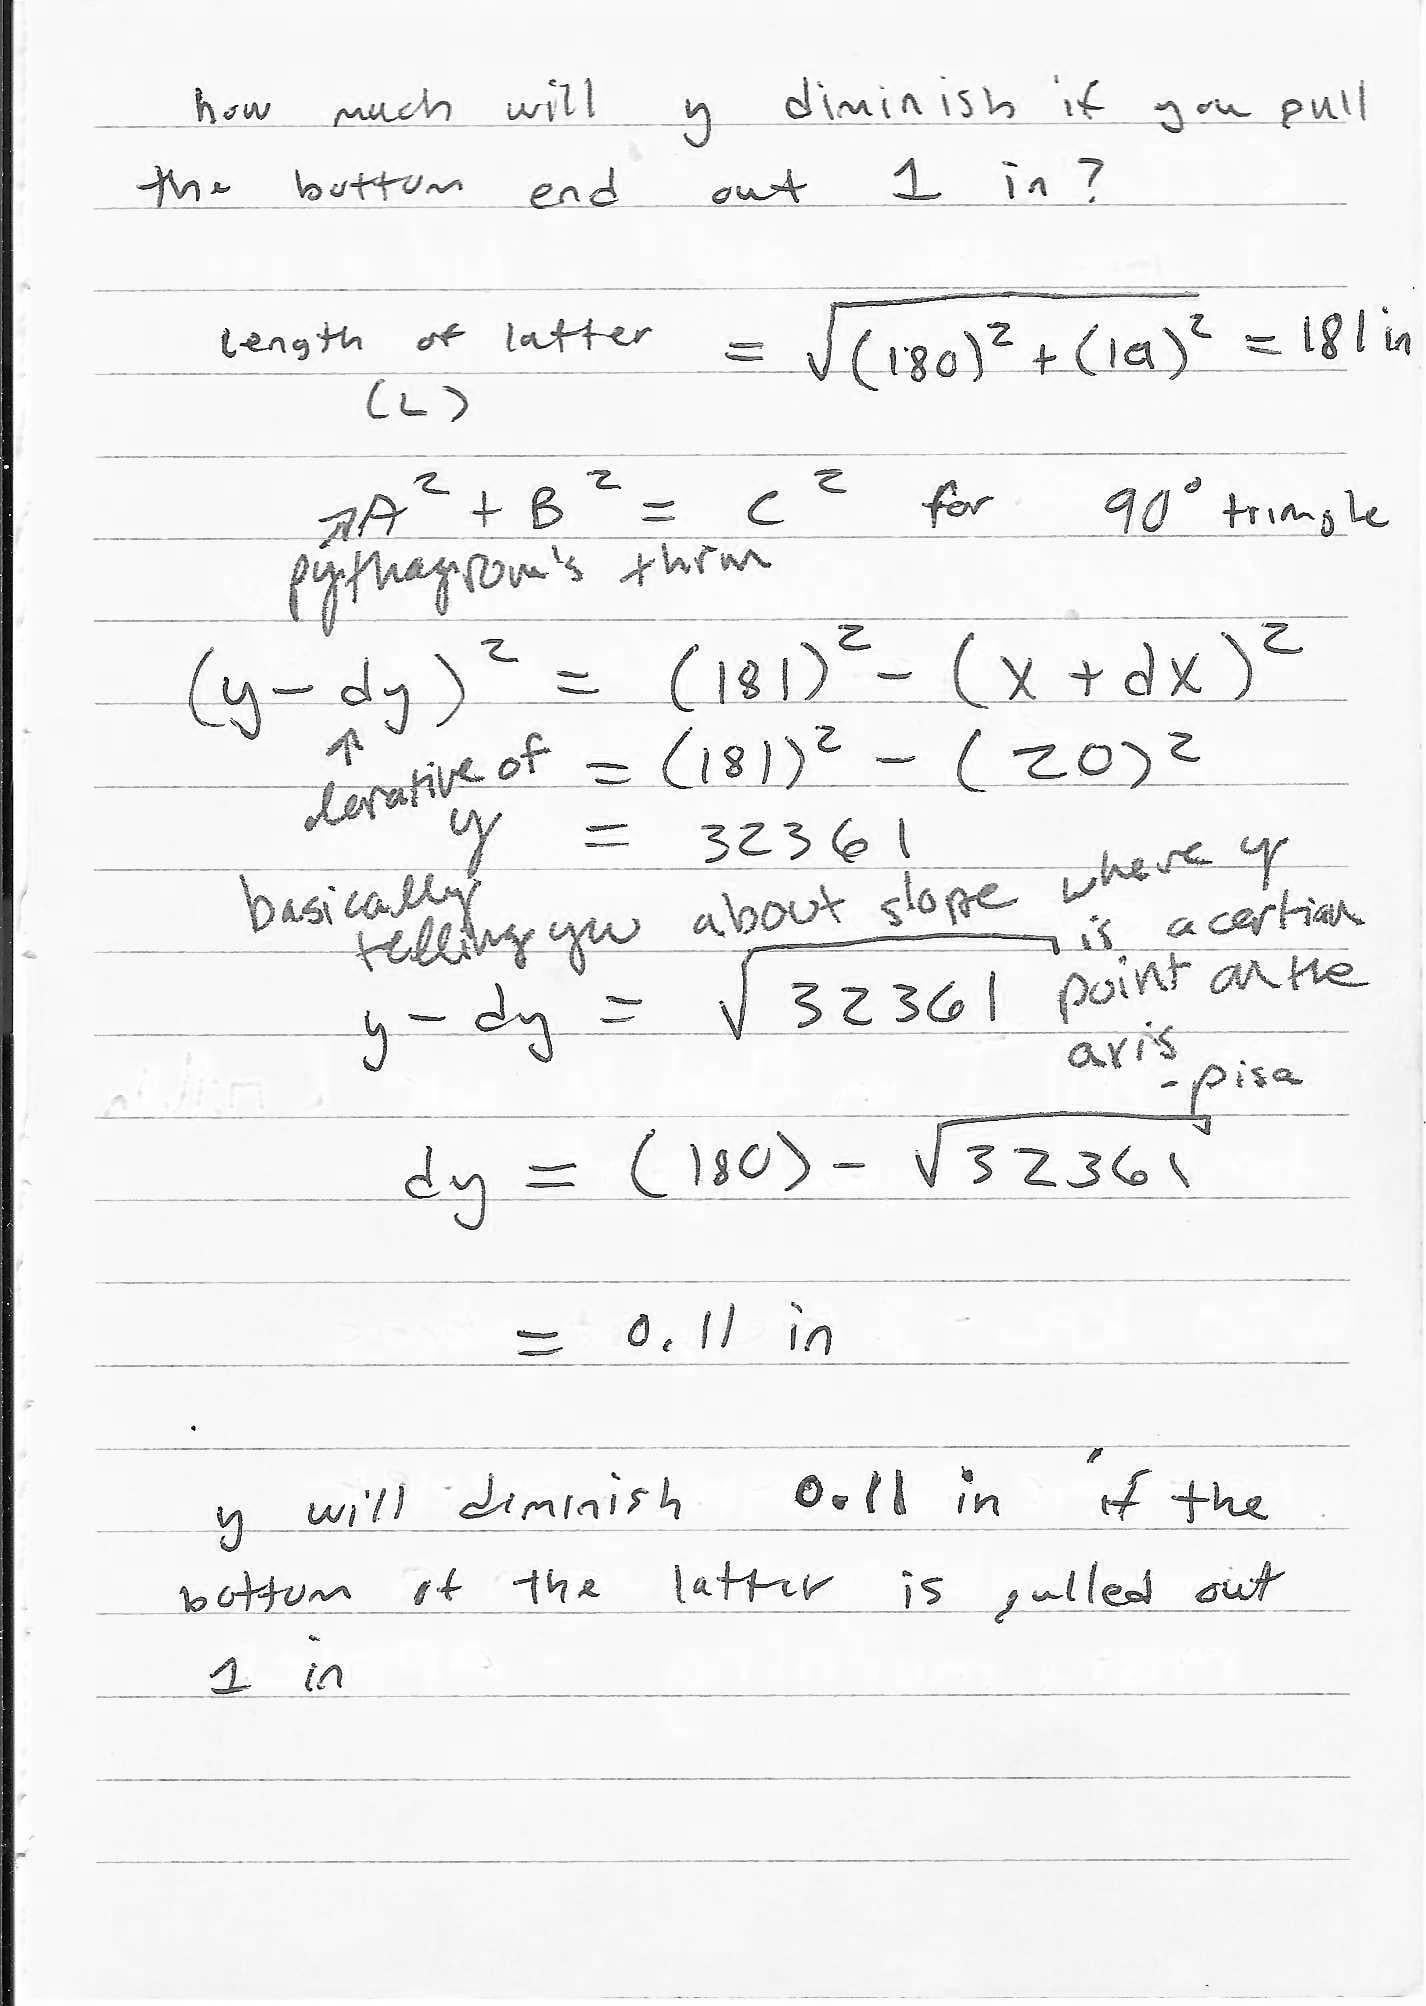 how much will y diminish if you pull
the bottom end out 1 in?
Length of latter = √(180)² + (19)² = 181 in
(L)
↗A² + B² = C² for 90° triangle
pythagrom's thrm
(y - dy)² = (181)² - (x + dx)²
↑
derative of y
= (181)² - (20)²
= 32361
basically telling you about slope where y is a certian point on the axis
- pisa
y - dy = √32361
dy = (180) - √32361
= 0.11 in
y will diminish 0.11 in if the
bottom of the latter is pulled out
1 in